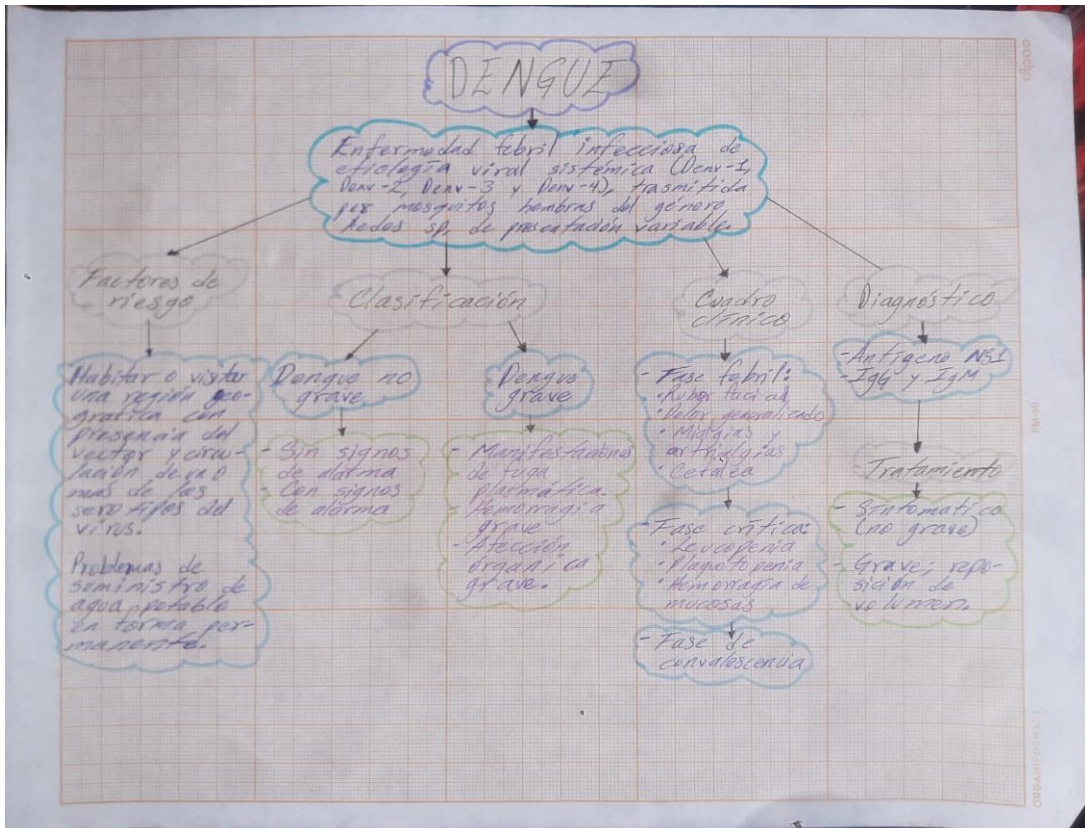 DENGUE
Enfermedad febril infecciosa de
etiología viral sistémica (Denv-1,
Denv-2, Denv-3 y Denv-4), trasmitida
por mosquitos hembras del género
Aedes sp, de presentación variable.
Factores de
riesgo
Habitar o visitar
una región geo-
gráfica con
presencia del
vector y circu-
lación de uno
más de los
serotipos del
virus.
Problemas de
suministro de
agua potable
en forma per-
manente.
Clasificación
Dengue no
grave
- Sin signos
de alarma
- Con signos
de alarma
Dengue
grave
- Manifestaciones
de fuga
plasmática.
- Hemorragia
grave
- Afección
orgánica
grave.
Cuadro
clínico
- Fase febril:
• Rubor facial
• Dolor generalizado
• Mialgias y
artralgias
• Cefalea
- Fase crítica:
• Leucopenia
• Plaquetopenia
• Hemorragia de
mucosas
- Fase de
convalescencia
Diagnóstico
- Antígeno NS1
- IgG y IgM
Tratamiento
- Sintomático
(no grave)
- Grave; repo-
sición de
volumen.
dipao
FM-10